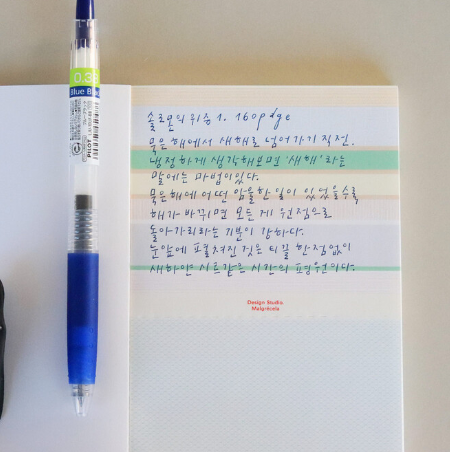 0.38
Blue Bl
PILOT
솔로몬의 위증 1. 160page
묵은 해에서 새해로 넘어가기 직전.
냉정하게 생각해보면 '새해'라는
말에는 마법이 있다.
묵은 해에 어떤 암울한 일이 있었을수록,
해가 바뀌면 모든 게 원점으로
돌아가리라는 기분이 강하다.
눈앞에 펼쳐진 것은 티끌 한 점 없이
새하얀 시트 같은 시간의 평원이다.
Design Studio